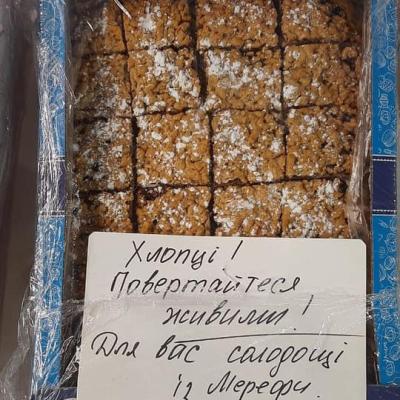 Хлопці!
Повертайтеся
живими!
Для вас солодощі
із Мерефи